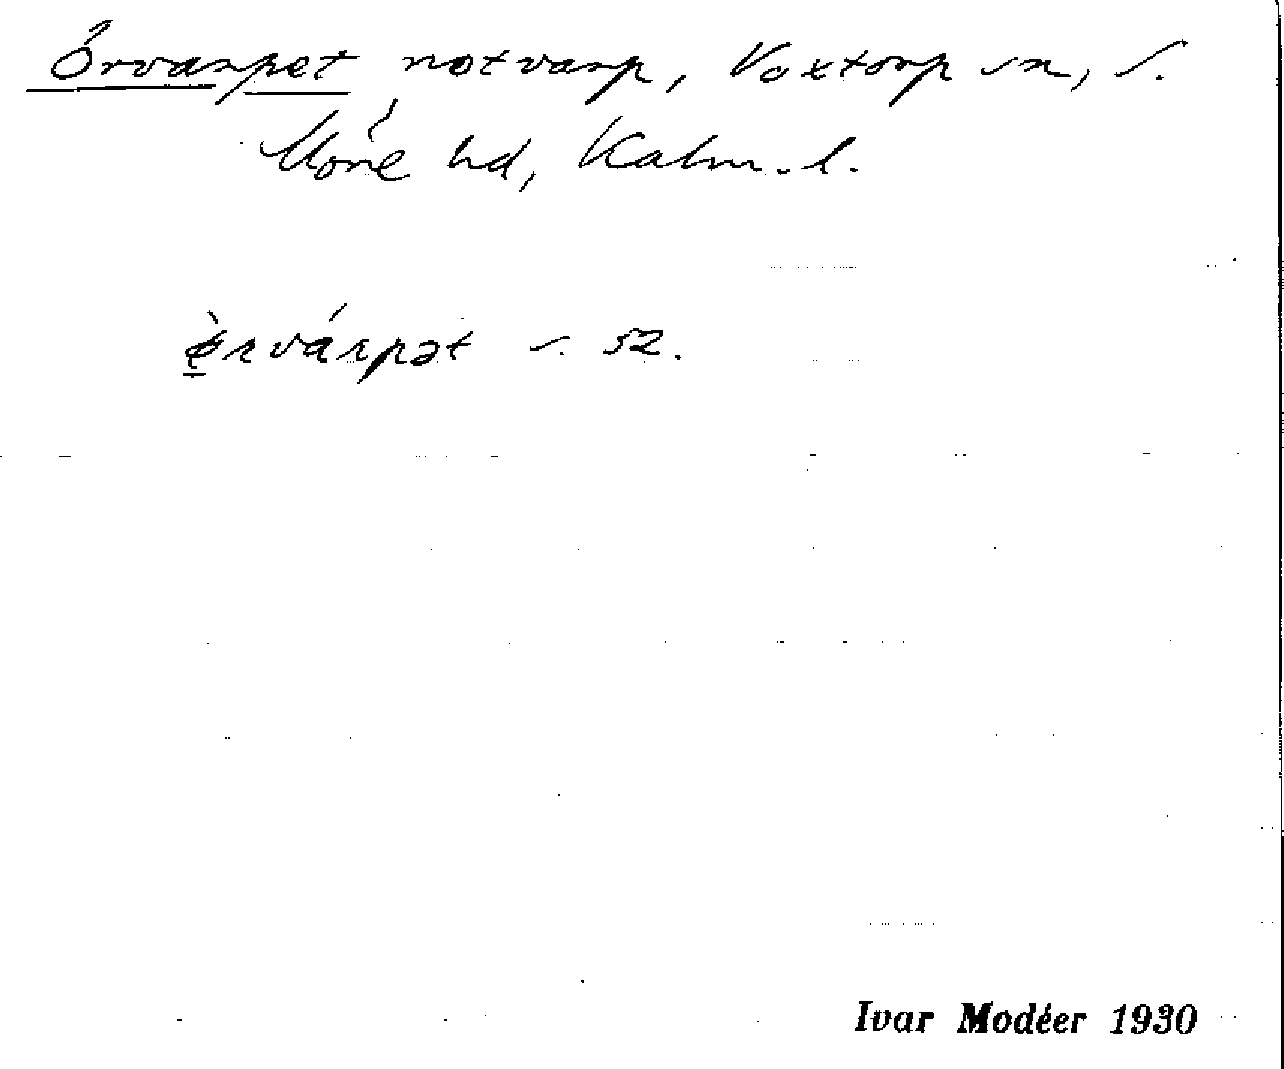 Örvarpet notvarp, Voxtorp sn, S.
Möre hd, Kalm. l.
s. 52.
Ivar Modéer 1930